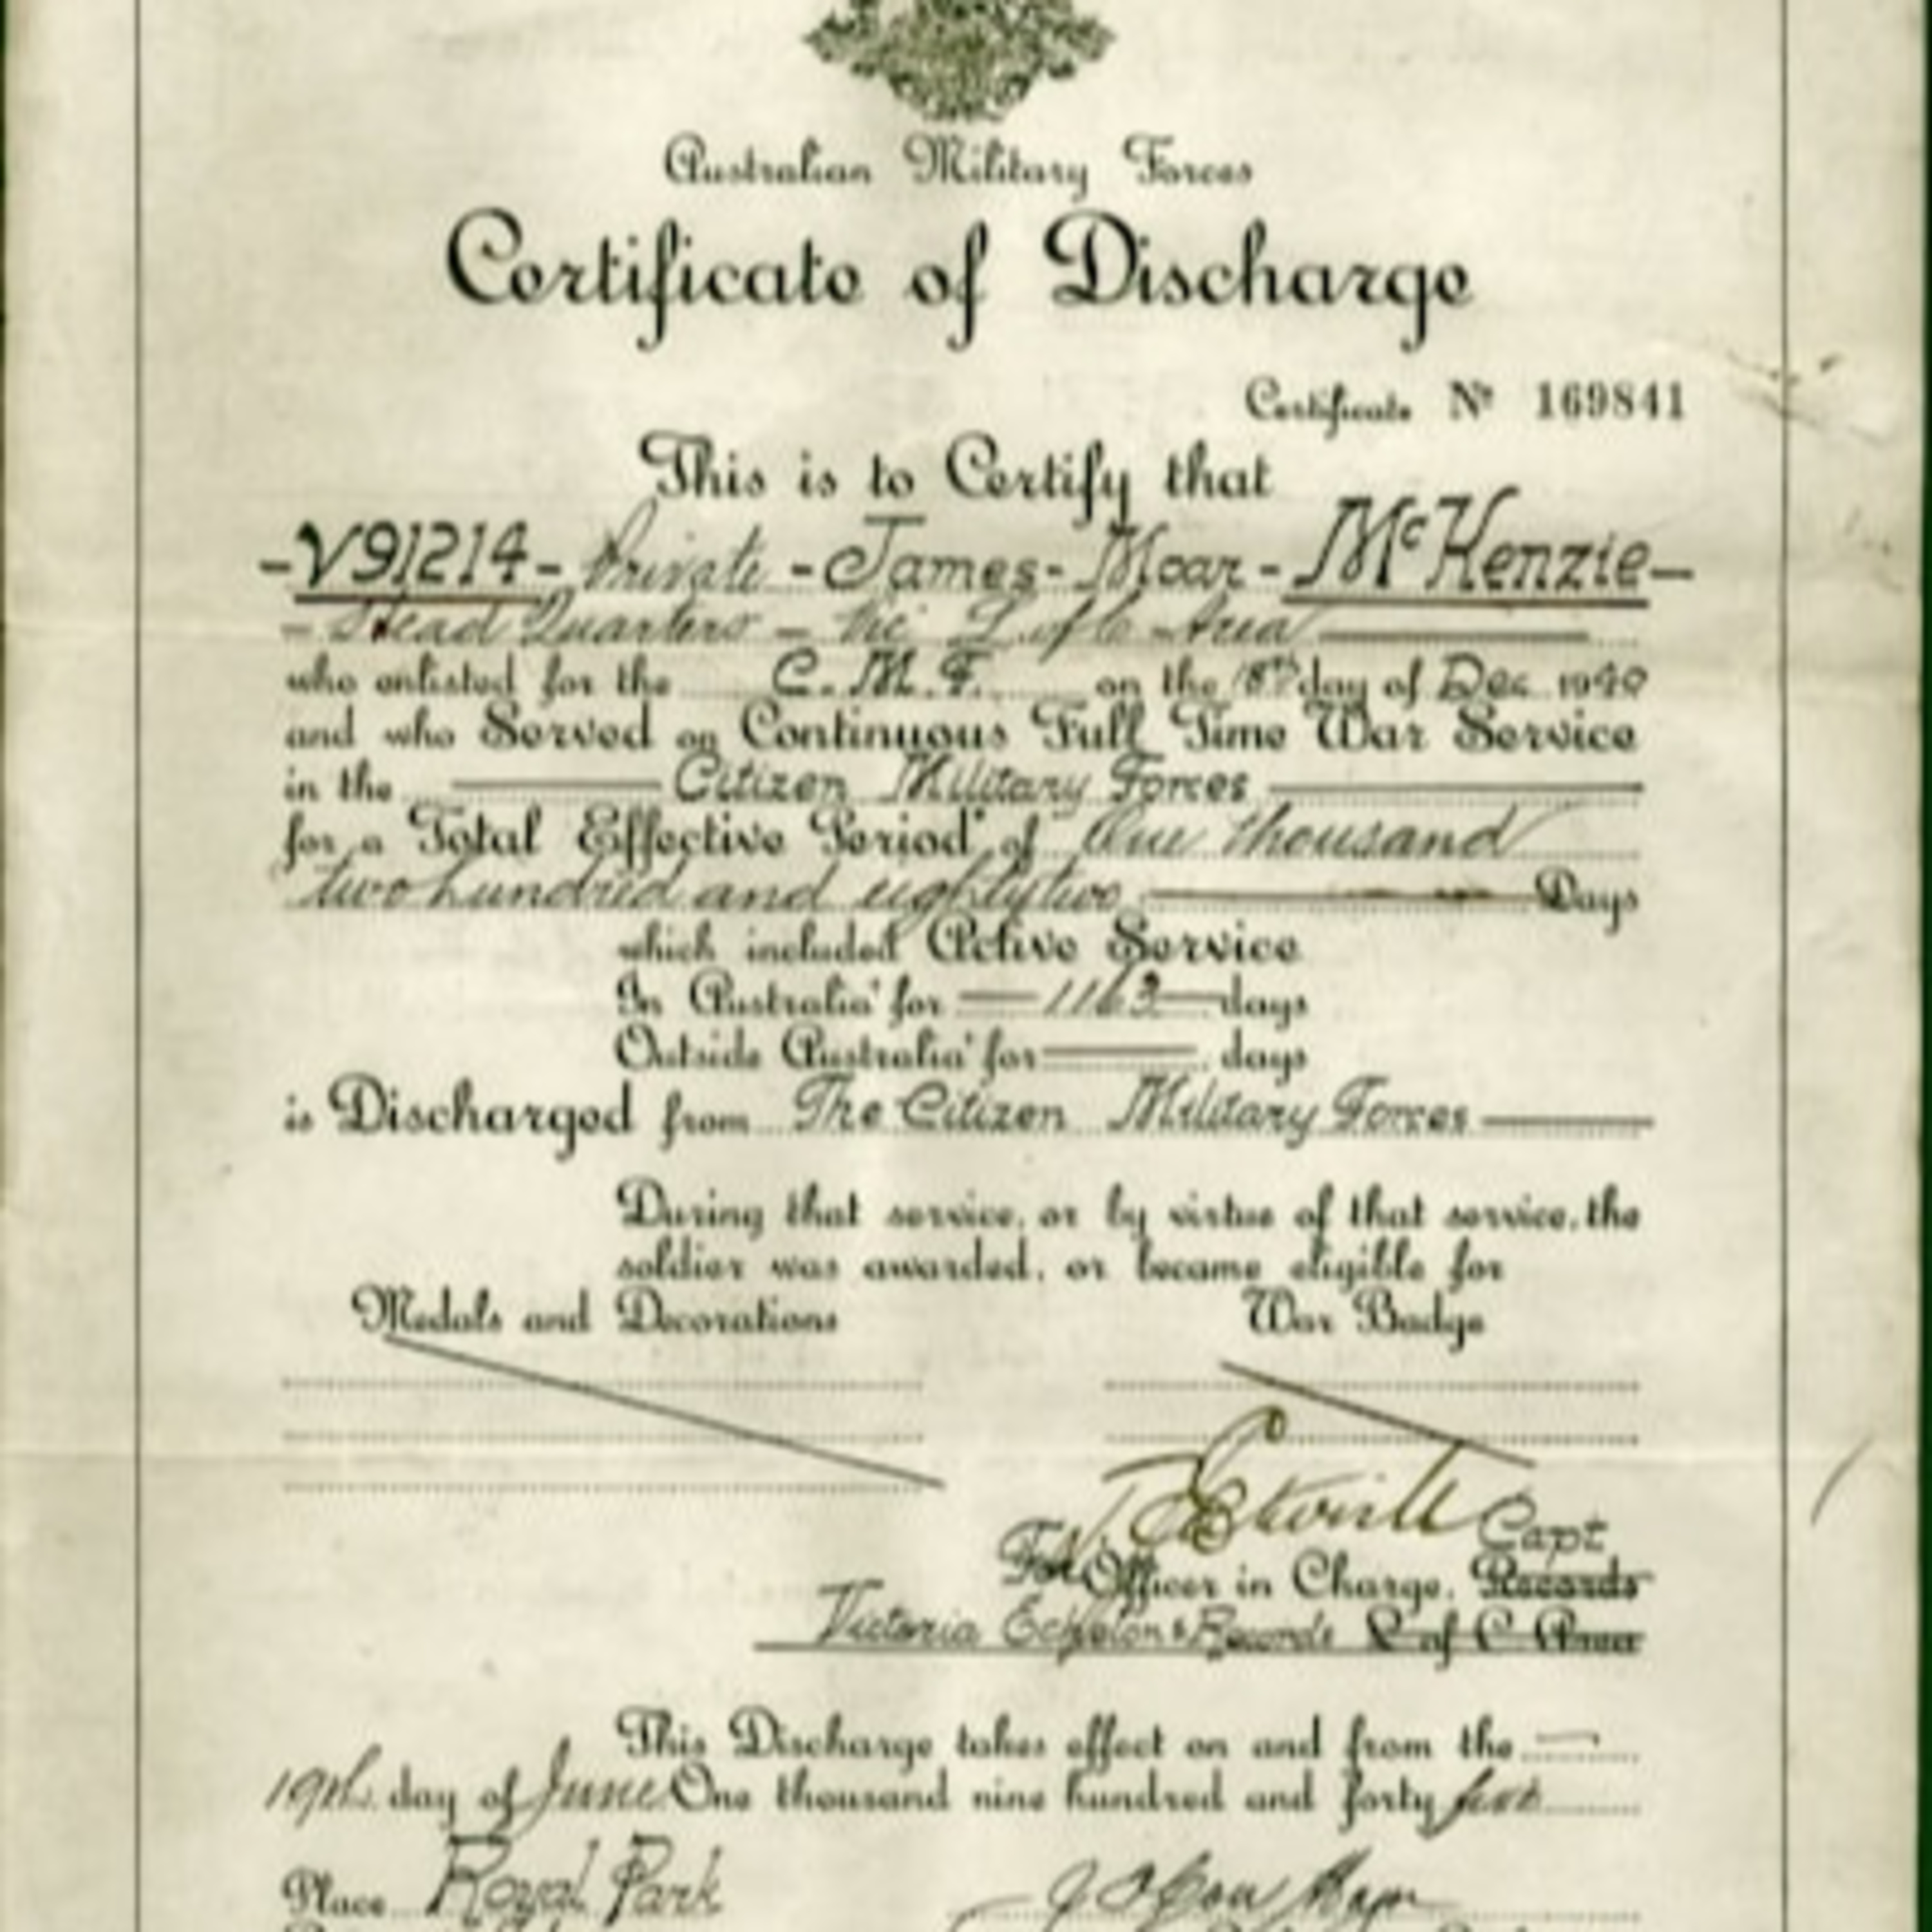 Australian Military Forces
Certificate of Discharge
Certificate No 169841
This is to Certify that
-V91214- Private - James - Moar - McKenzie -
- Head Quarters - Vic L of C Area
who enlisted for the C.M.F. on the 18th day of Dec 1940
and who Served on Continuous Full Time War Service
in the Citizen Military Forces
for a Total Effective Period of One thousand
two hundred and eighty two Days
which included Active Service
In Australia for 1163 days
Outside Australia for days
is Discharged from The Citizen Military Forces
During that service, or by virtue of that service, the
soldier was awarded, or became eligible for
Medals and Decorations War Badge
Capt
For Officer in Charge, Records
Victoria Echelon & Records L of C Area
This Discharge takes effect on and from the
19th day of June One thousand nine hundred and forty five
Place Royal Park